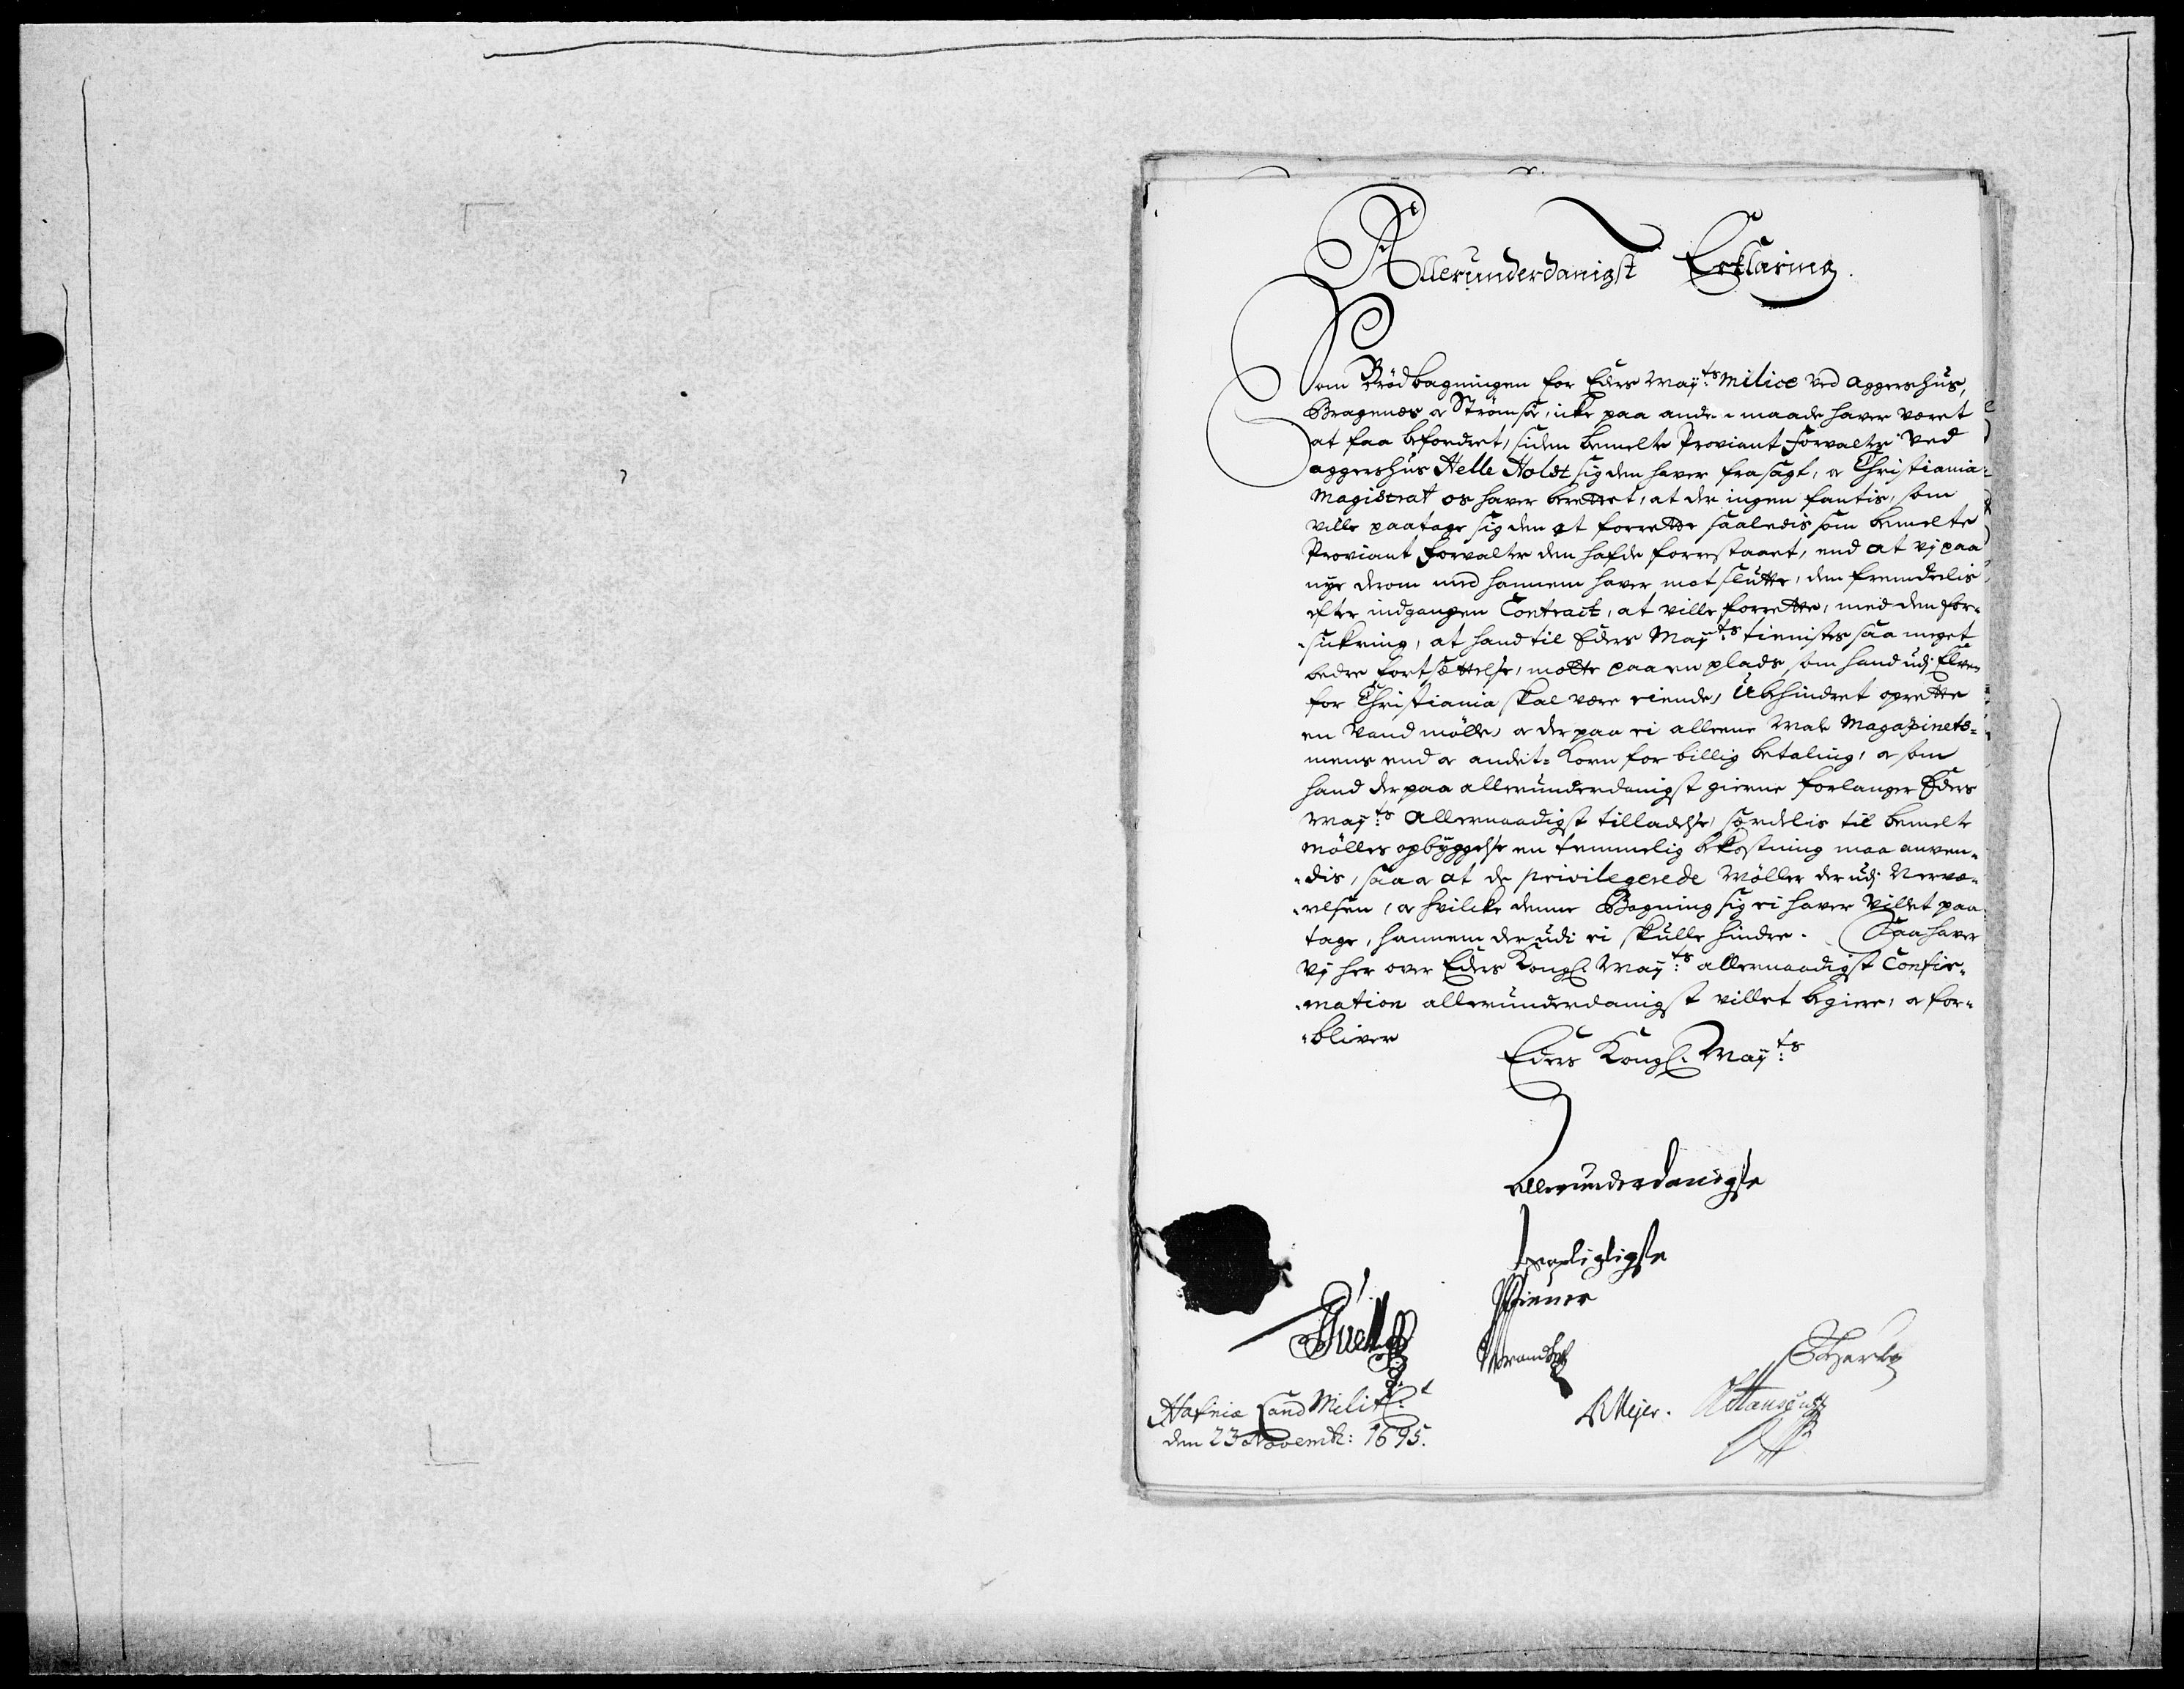 Allerunderdanigst Erklæring.
Som Brødbagningen for Eders Mayts milice ved Aggershus,
Bragenæs og Strømsø, icke paa anden maade haver været
at faa befordret, siden bemelte Proviant Forvalter ved
aggershus Helle Holst sig den haver frasagt, og Christiania
Magistrat os haver berettet, at der ingen fantis, som
ville paatage sig den at forrette saaledis som bemelte
Proviant Forvalter den hafde forrestaaet, end at vj paa
nye derom med hannem haver mot slutte, den fremdeelis
efter indgangen Contract, at ville forrette, med den for-
-sickring, at hand til Eders Mayts tienistes saa meget
bedre fortsættelse, motte paa en plads, som hand udj Elven
for Christiania skal være eiende, Ubehindret oprette
en Vand mølle, og der paa ei alleene Male Magazinets-
mens end og andet-Korn for billig betaling, og som
hand der paa allerunderdanigst gierne forlanger Eders
Mayts Allernaadigst tilladelse, særdelis til bemelte
Mølles opbyggelse en temmelig bekostning maa anven-
-dis, saa og at de privilegerede Møller der udj Nervæ-
-relsen, og hvilcke denne Bagning sig ei haver villet paa-
tage, hannem der udi ei skulle hindre. Saa haver
Vj her over Eders Kongl. Mayts allernaadigst Confir-
-mation allerunderdanigst villet begiere, og for-
-bliver
Eders Kongl. Mayts
allerunderdanigste
pligtigste
Tiener
Hafniæ Land Milit:
den 23 Novemb: 1695.
Meyer.